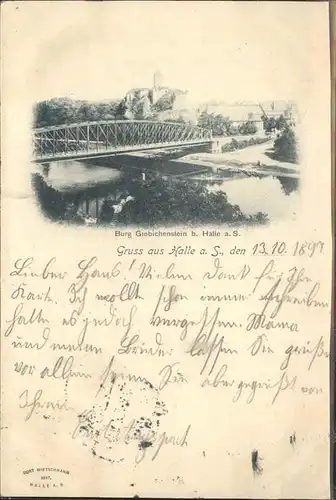 Burg Giebichenstein b. Halle a.S.
Gruss aus Halle a. S., den 13.10.1897
Lieber Hans! Vielen Dank für Ihre
Karte. Ich wollte schon immer schreiben
hatte es jedoch vergessen. Mama
und meinen Bruder lassen Sie grüße
vor allem seien Sie aber gegrüßt von
Ihrem
KURT WIETSCHMANN
1897.
HALLE A. S.